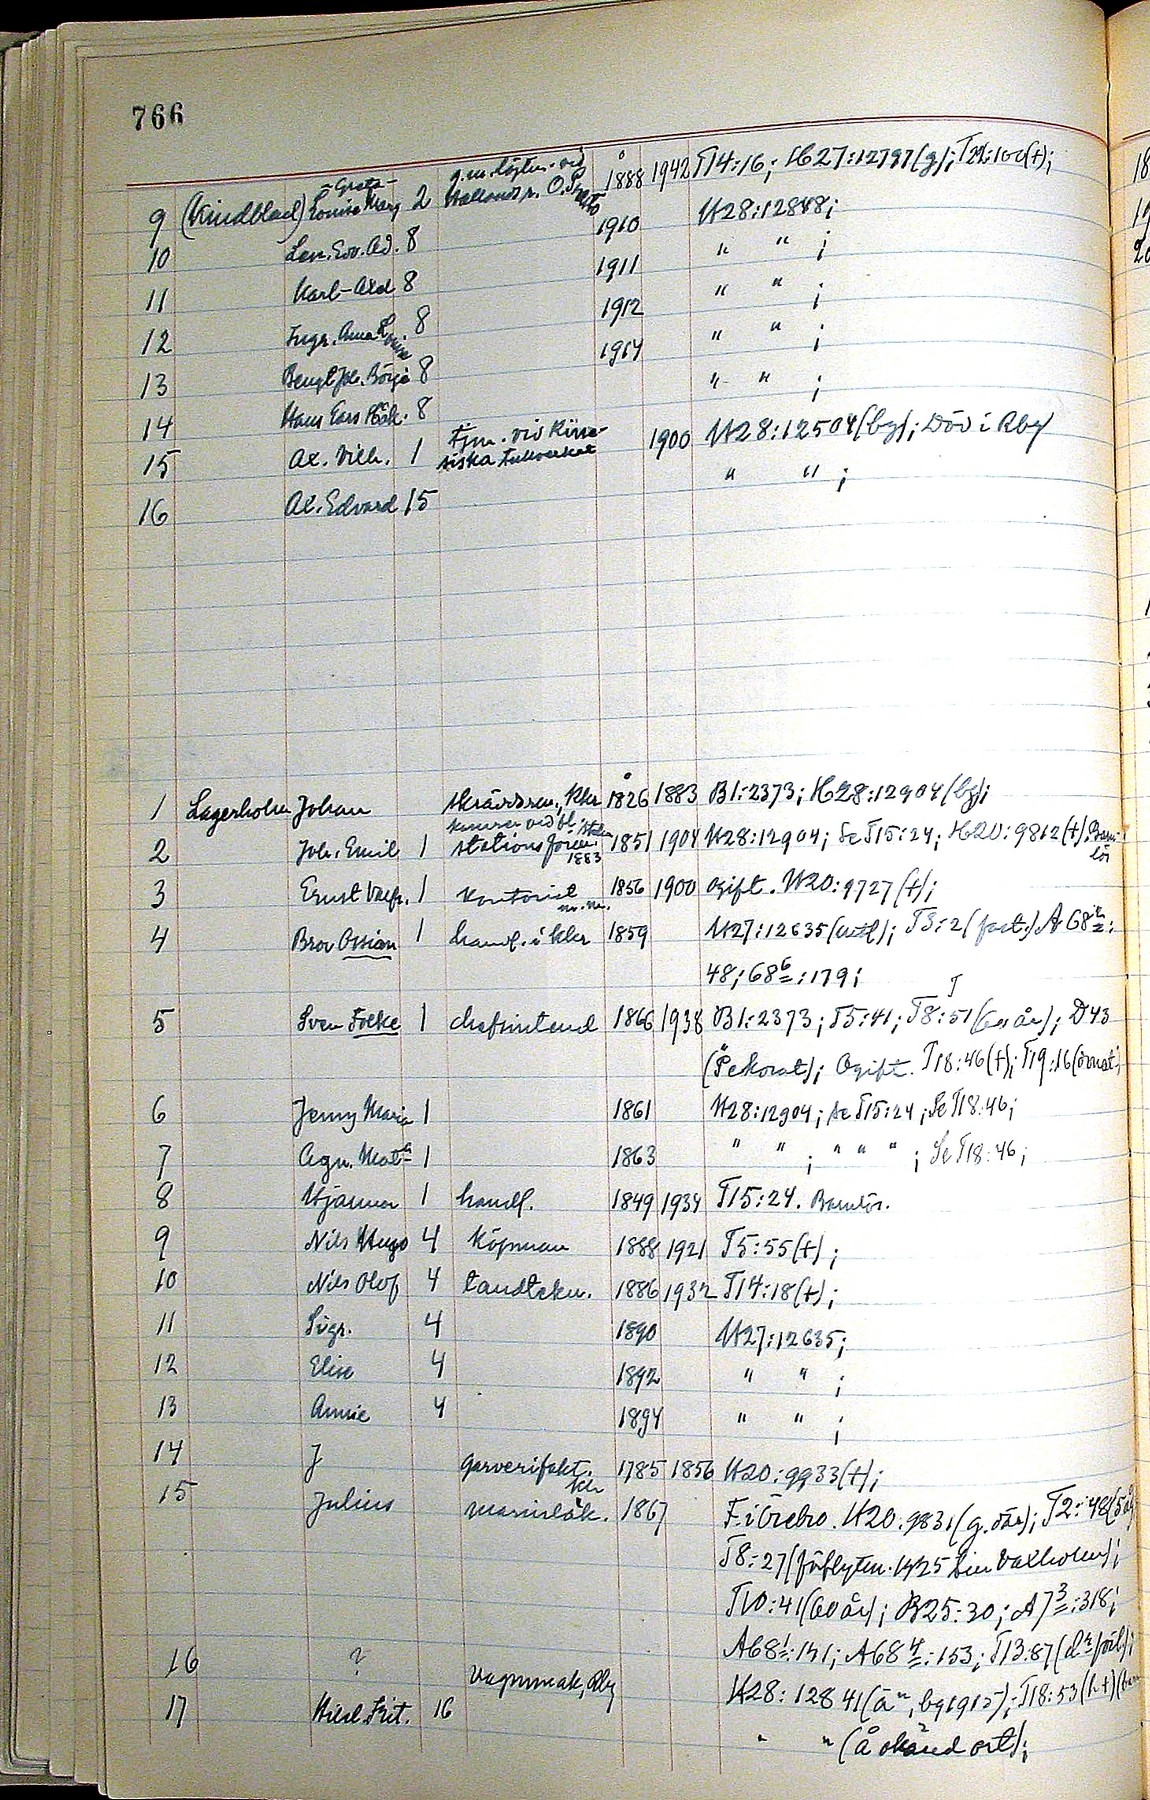 766
9 (Kindblad) Greta-Louise Mary 2 g.m. löjtn. vid Hallands r. O. 1888 1942 T14:16; H27:12797(g); T22:100(+);
10 Len. Edv. Ad. 8 1910 H28:12848;
11 Karl-Axel 8 1911 " " ;
12 Ingr. Anna Lovisa 8 1912 " " ;
13 Bengt Joh. Börje 8 1914 " " ;
14 Hans Lars 8 " " ;
15 Ax. Vilh. 1 Tjm. vid Kinesiska tullverket 1900 H28:12504(bg); Död i Aby
16 Ax. Edvard 15 " " ;
1 Lagerholm Johan skräddrem., Khr 1826 1883 B1:2373; H28:12904(bg);
2 Joh. Emil 1 stations 1883 1851 1904 H28:12904; Se T15:24; H20:9812(+) Barnlös
3 Ernst Valfr. 1 Kontorist m.m. 1856 1900 Ogift. H20:9727(+);
4 Bror Ossian 1 handl. i Khr 1859 H27:12635(utfl); T3:2(fast.) A68
48; 68 6:179;
5 Sven Folke 1 chefsintend 1866 1938 B1:2373; T5:41; T8:51(60 år); D43
(Pekorat); Ogift. T18:46(+); T19:16
6 Jenny Maria 1 1861 H28:12904; se T15:24; Se T18:46;
7 Agn. Math 1 1863 " " ; " " " ; Se T18:46;
8 Hjalmar 1 handl. 1849 1934 T15:24. Barnlös.
9 Nils Hugo 4 Köpman 1888 1921 T5:55(+);
10 Nils Olof 4 tandtekn. 1886 1932 T14:18(+);
11 Sigr. 4 1890 H27:12635;
12 Elise 4 1892 " " ;
13 Annie 4 1894 " " ;
14 J garverifakt. Khr 1785 1856 H20:9933(+);
15 Julius marinläk. 1867 F. i Örebro. H20:9831(g. där); T2:48(50 år)
T8:27(förflyttn. 1925 Vaxholm);
T10:41(60 år); B25:30; A7 3:318;
A68 1:141; A68 4:153; T13:87
16 ? Vagnmak, Aby H28:12841(ä", bg 1915); T18:53(h+)
17 Hild. Frit. 16 " " (å okänd ort);